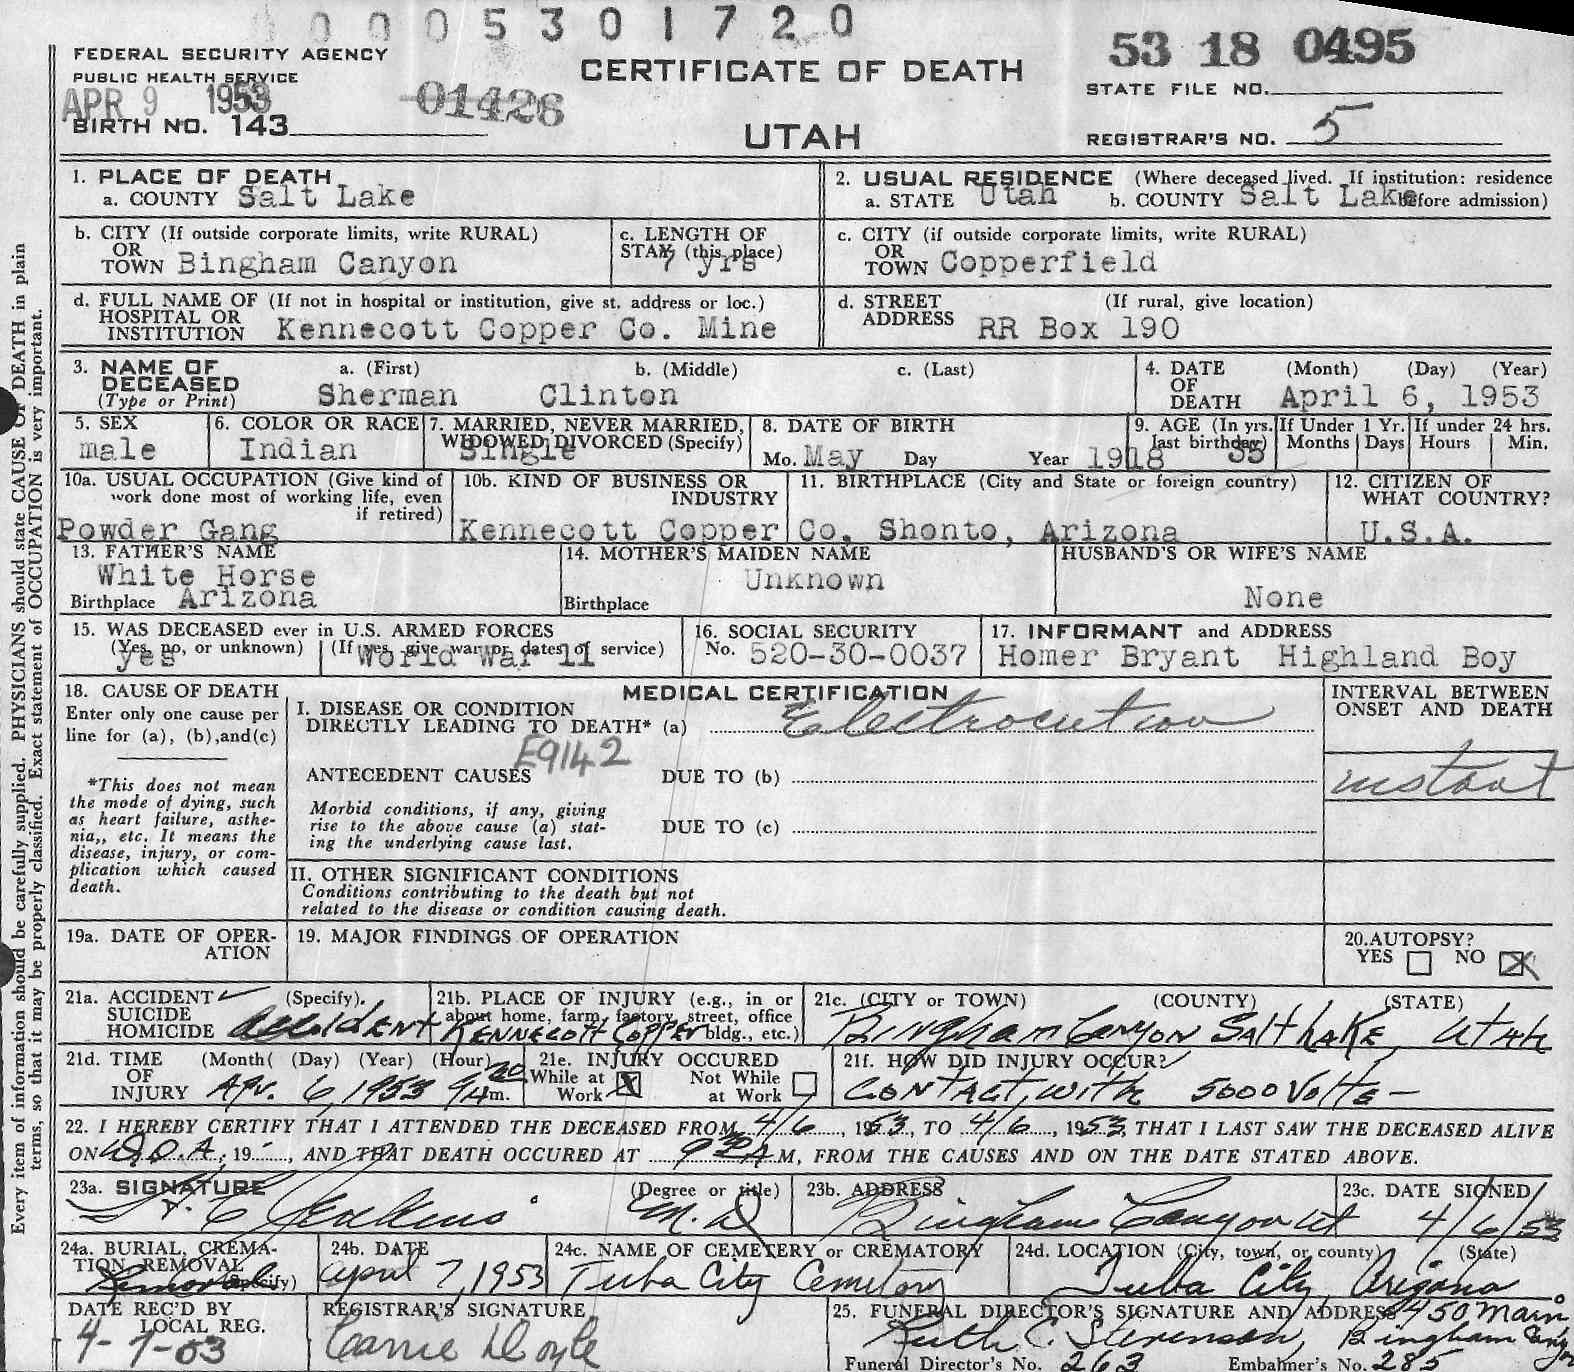 0005301720
FEDERAL SECURITY AGENCY
PUBLIC HEALTH SERVICE
APR 9 1953
BIRTH NO. 143
01426
CERTIFICATE OF DEATH
UTAH
53 18 0495
STATE FILE NO.
REGISTRAR'S NO. 5
1. PLACE OF DEATH
a. COUNTY Salt Lake
2. USUAL RESIDENCE (Where deceased lived. If institution: residence before admission)
a. STATE Utah b. COUNTY Salt Lake
b. CITY (If outside corporate limits, write RURAL)
OR
TOWN Bingham Canyon
c. LENGTH OF
STAY (this place)
7 yrs
c. CITY (if outside corporate limits, write RURAL)
OR
TOWN Copperfield
d. FULL NAME OF (If not in hospital or institution, give st. address or loc.)
HOSPITAL OR
INSTITUTION Kennecott Copper Co. Mine
d. STREET (If rural, give location)
ADDRESS RR Box 190
3. NAME OF a. (First) b. (Middle) c. (Last)
DECEASED
(Type or Print) Sherman Clinton
4. DATE (Month) (Day) (Year)
OF
DEATH April 6, 1953
5. SEX
male
6. COLOR OR RACE
Indian
7. MARRIED, NEVER MARRIED,
WIDOWED, DIVORCED (Specify)
Single
8. DATE OF BIRTH
Mo. May Day Year 1918
9. AGE (In yrs. last birthday)
35
If Under 1 Yr.
Months Days
If under 24 hrs.
Hours Min.
10a. USUAL OCCUPATION (Give kind of
work done most of working life, even
if retired)
Powder Gang
10b. KIND OF BUSINESS OR
INDUSTRY
Kennecott Copper Co.
11. BIRTHPLACE (City and State or foreign country)
Shonto, Arizona
12. CITIZEN OF
WHAT COUNTRY?
U.S.A.
13. FATHER'S NAME
White Horse
Birthplace Arizona
14. MOTHER'S MAIDEN NAME
Unknown
Birthplace
HUSBAND'S OR WIFE'S NAME
None
15. WAS DECEASED ever in U.S. ARMED FORCES
(Yes, no, or unknown) (If yes, give war or dates of service)
yes World War 11
16. SOCIAL SECURITY
No. 520-30-0037
17. INFORMANT and ADDRESS
Homer Bryant Highland Boy
18. CAUSE OF DEATH
Enter only one cause per
line for (a), (b),and(c)
*This does not mean
the mode of dying, such
as heart failure, asthe-
nia,, etc. It means the
disease, injury, or com-
plication which caused
death.
MEDICAL CERTIFICATION
I. DISEASE OR CONDITION
DIRECTLY LEADING TO DEATH* (a) Electrocution
E9142
ANTECEDENT CAUSES DUE TO (b)
Morbid conditions, if any, giving
rise to the above cause (a) stat-
ing the underlying cause last.
DUE TO (c)
INTERVAL BETWEEN
ONSET AND DEATH
instant
II. OTHER SIGNIFICANT CONDITIONS
Conditions contributing to the death but not
related to the disease or condition causing death.
19a. DATE OF OPER-
ATION
19. MAJOR FINDINGS OF OPERATION
20.AUTOPSY?
YES NO X
21a. ACCIDENT ✓ (Specify).
SUICIDE
HOMICIDE Accident
21b. PLACE OF INJURY (e.g., in or
about home, farm, factory, street, office
bldg., etc.)
Kennecott Copper
21c. (CITY or TOWN) (COUNTY) (STATE)
Bingham Canyon Salt Lake, Utah
21d. TIME (Month( (Day) (Year) (Hour)
OF
INJURY Apr. 6, 1953 9 20 A m.
21e. INJURY OCCURED
While at Work X Not While at Work
21f. HOW DID INJURY OCCUR?
Contact with 5000 Volts -
22. I HEREBY CERTIFY THAT I ATTENDED THE DECEASED FROM 4/6, 1953, TO 4/6, 1953, THAT I LAST SAW THE DECEASED ALIVE
ON D.O.A, 19, AND THAT DEATH OCCURED AT 9 30 A M, FROM THE CAUSES AND ON THE DATE STATED ABOVE.
23a. SIGNATURE (Degree or title)
Jenkins M.D.
23b. ADDRESS
Bingham Canyon Ut
23c. DATE SIGNED
4/6/53
24a. BURIAL, CREMA-
TION, REMOVAL
(Specify)
Removal
24b. DATE
April 7, 1953
24c. NAME OF CEMETERY or CREMATORY
Tuba City Cemetery
24d. LOCATION (City, town, or county) (State)
Tuba City, Arizona
DATE REC'D BY
LOCAL REG.
4-7-53
REGISTRAR'S SIGNATURE
Carrie Doyle
25. FUNERAL DIRECTOR'S SIGNATURE AND ADDRESS 450 Main
Ruth C. Stevenson, Bingham
Funeral Director's No. 263 Embalmer's No. 285
Every item of information should be carefully supplied. PHYSICIANS should state CAUSE OF DEATH in plain
terms, so that it may be properly classified. Exact statement of OCCUPATION is very important.